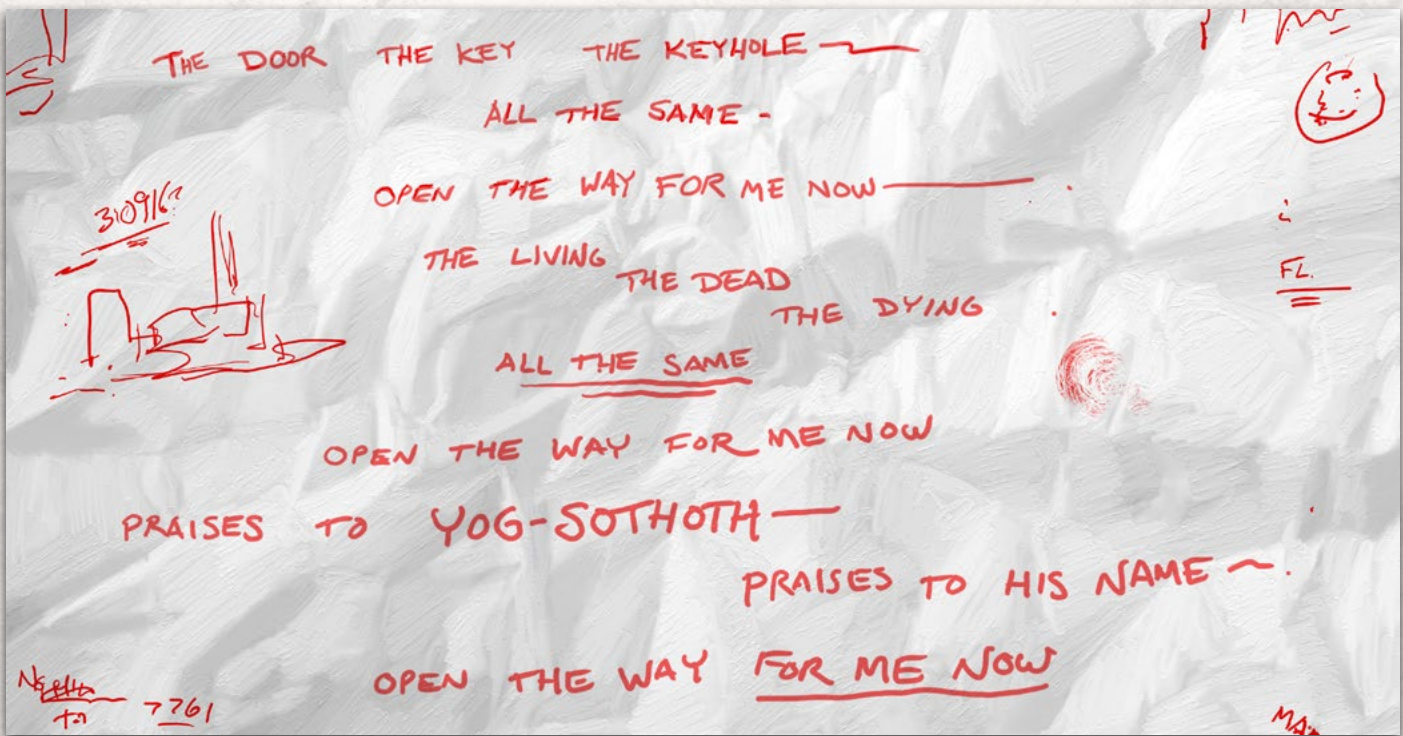 THE DOOR THE KEY THE KEYHOLE —
ALL THE SAME -
OPEN THE WAY FOR ME NOW —
THE LIVING
THE DEAD
THE DYING
FL.
ALL THE SAME
OPEN THE WAY FOR ME NOW
PRAISES TO YOG-SOTHOTH —
PRAISES TO HIS NAME ~
OPEN THE WAY FOR ME NOW